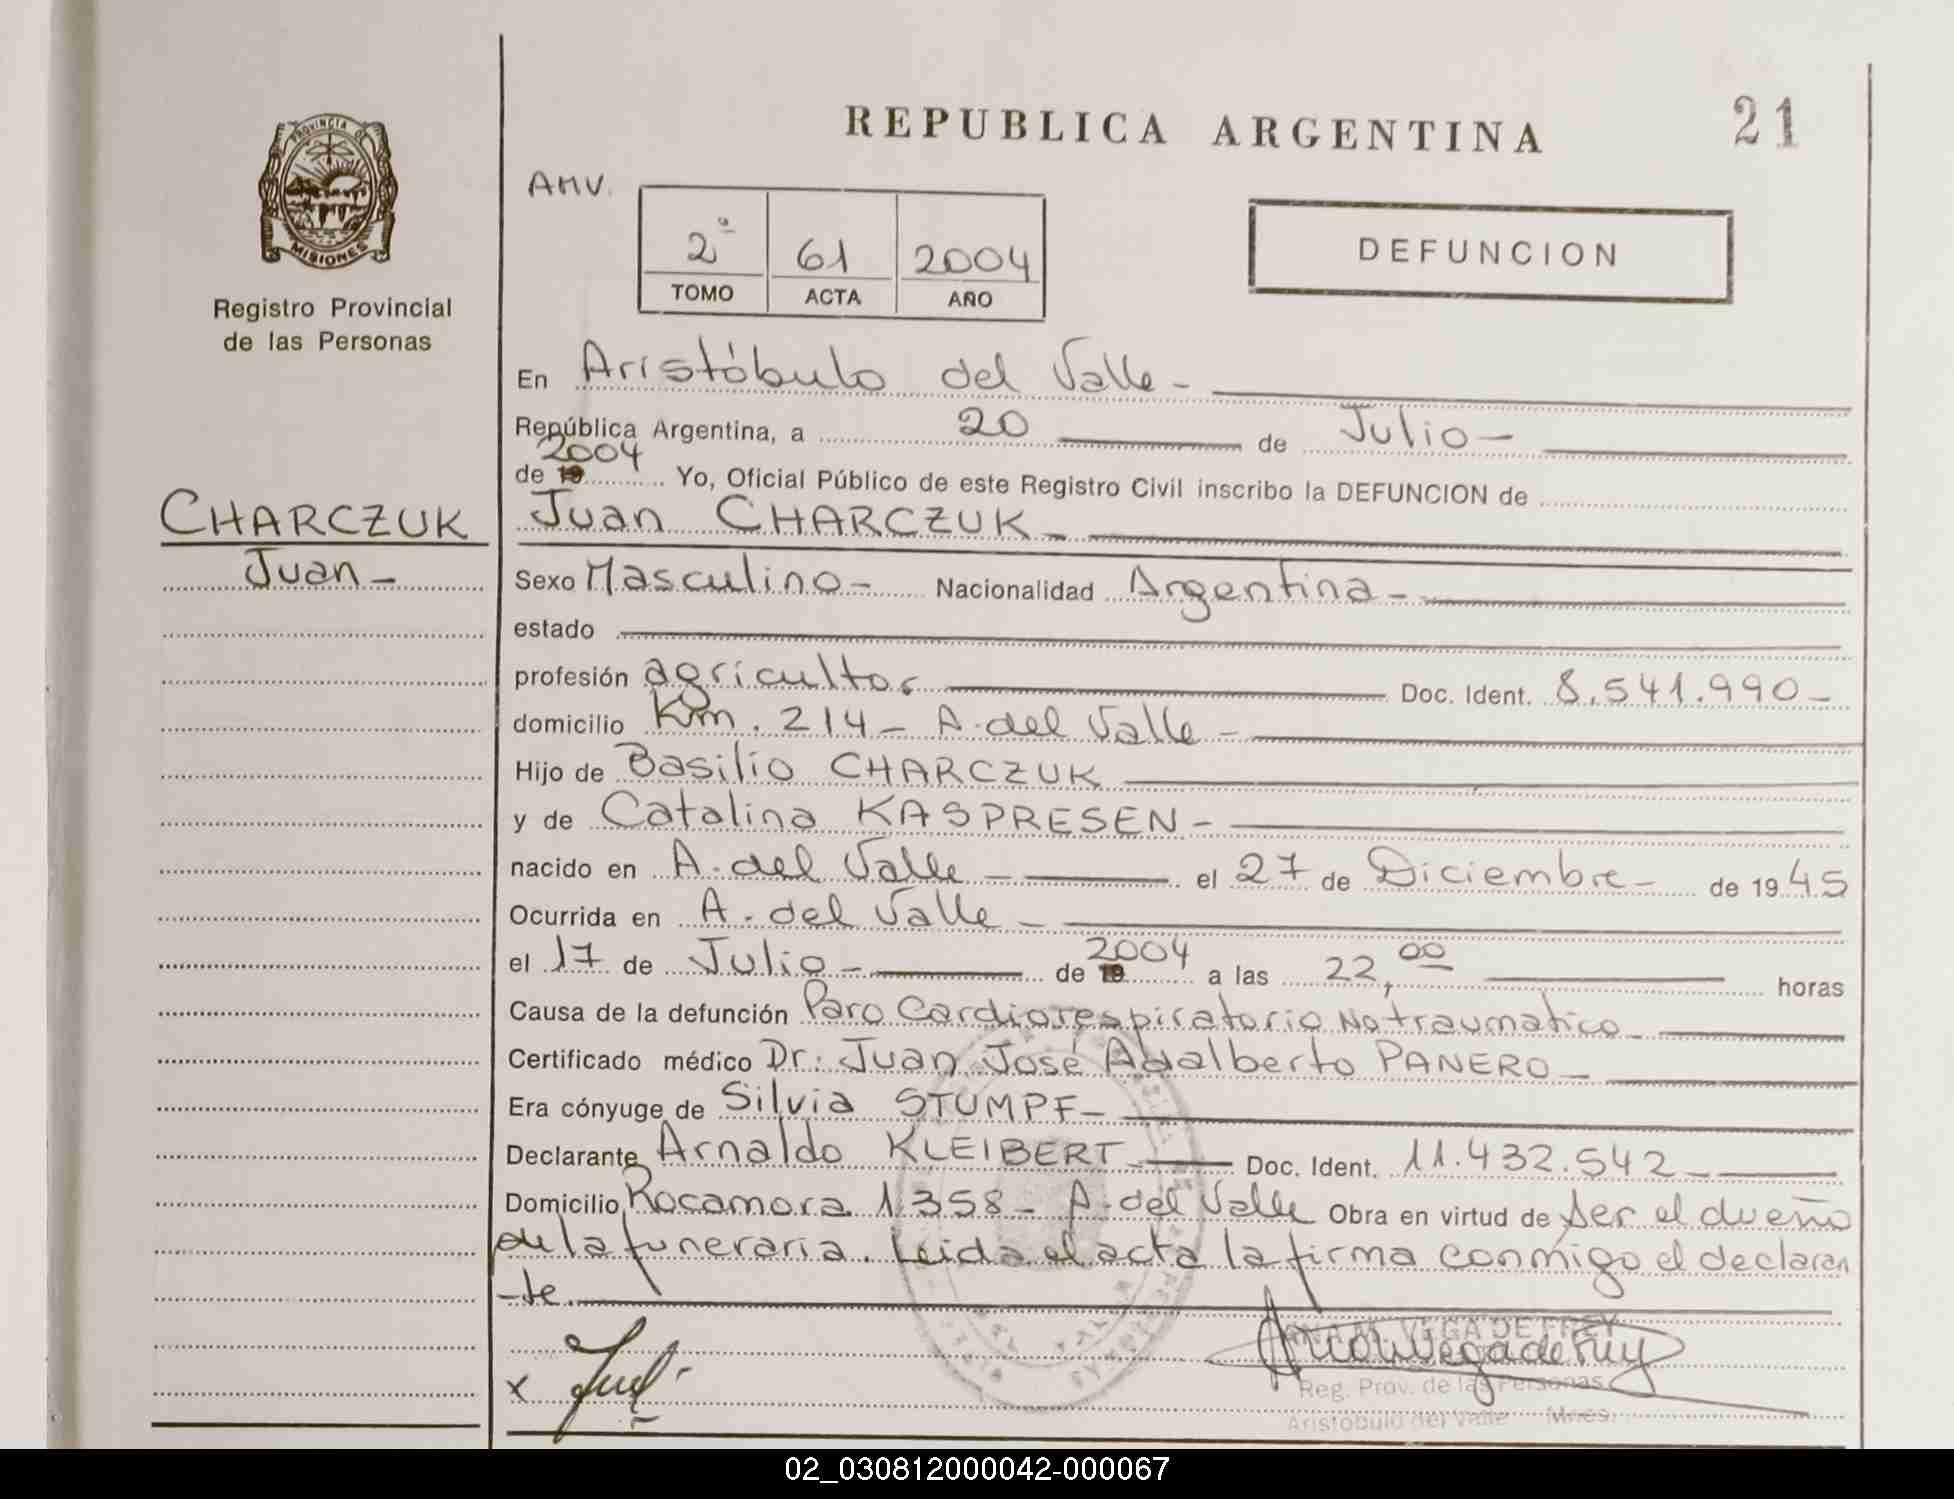 REPUBLICA ARGENTINA
21
PROVINCIA DE
MISIONES
Registro Provincial
de las Personas
AMV.
2ª 61 2004
TOMO ACTA AÑO
DEFUNCION
En Aristóbulo del Valle-
República Argentina, a 20 de Julio-
de 19 2004 Yo, Oficial Público de este Registro Civil inscribo la DEFUNCION de
CHARCZUK
Juan-
Juan CHARCZUK-
Sexo Masculino- Nacionalidad Argentina-
estado
profesión agricultor Doc. Ident. 8.541.990-
domicilio Km. 214- A. del Valle-
Hijo de Basilio CHARCZUK
y de Catalina KASPRESEN-
nacido en A. del Valle- el 27 de Diciembre- de 1945
Ocurrida en A. del Valle-
el 17 de Julio- de 19 2004 a las 22,00 horas
Causa de la defunción Paro Cardiorespiratorio No traumatico-
Certificado médico Dr: Juan José Adalberto PANERO-
Era cónyuge de Silvia STUMPF-
Declarante Arnaldo KLEIBERT Doc. Ident. 11.432.542-
Domicilio Rocamora 1.358- A. del Valle Obra en virtud de ser el dueño
de la funeraria. Leida el acta la firma conmigo el declaran
-te.
ANA M. VEGA DE FREY
x
Reg. Prov. de las Personas
Aristóbulo del Valle Mnes.
02_030812000042-000067